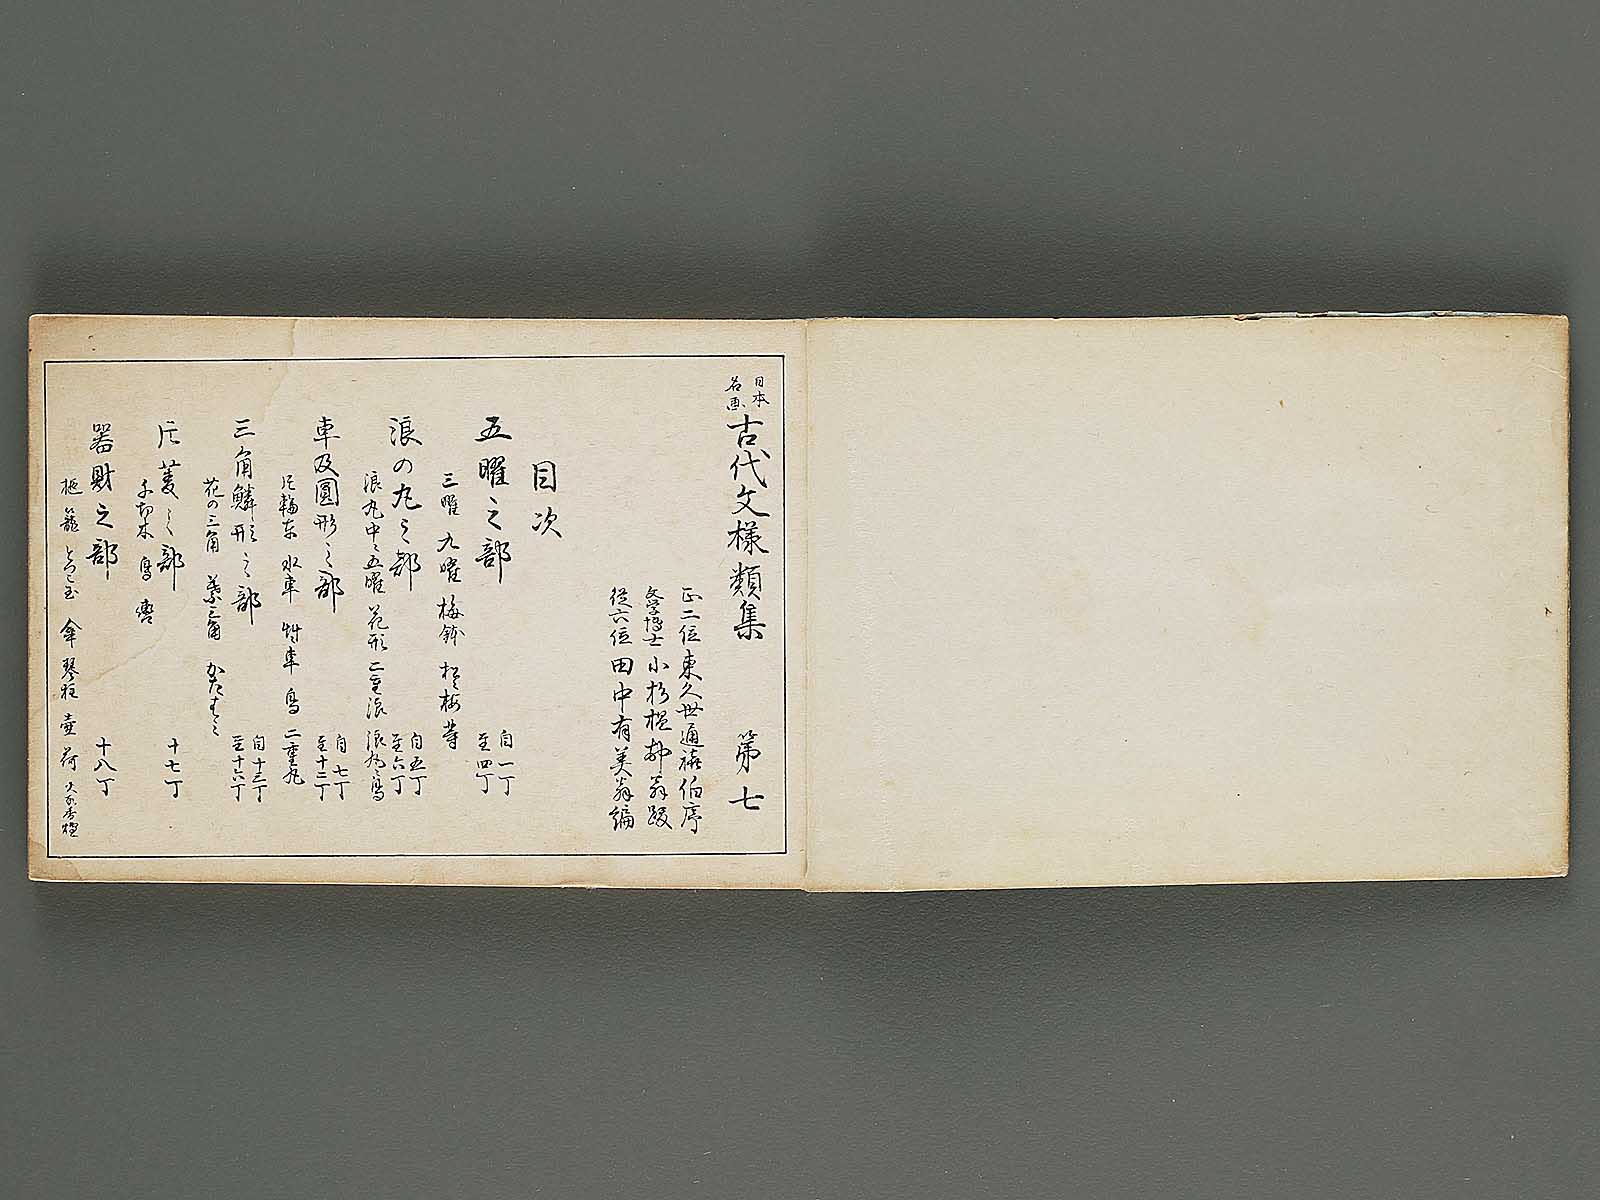 日本
名画
古代文様類集 第七
正二位東久世通禧伯序
文学博士小杉榲邨翁跋
従六位田中有美翁編
目次
五曜之部 自一丁 至四丁
三曜 九曜 梅鉢 松梅等
浪の丸之部 自五丁 至六丁
浪丸中ニ五曜 花形 二重浪 浪丸ニ鳥
車及圓形之部 自七丁 至十二丁
片輪車 水車 車 鳥 二重丸
三角鱗形之部 自十三丁 至十六丁
花の三角 葉三角
片菱之部 十七丁
千切木 鳥
器財之部 十八丁
籠 傘 琴柱 壷 荷